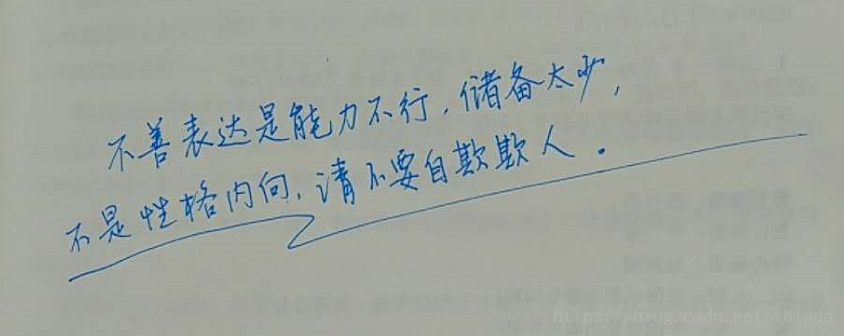 不善表达是能力不行，储备太少，
不是性格内向，请不要自欺欺人。